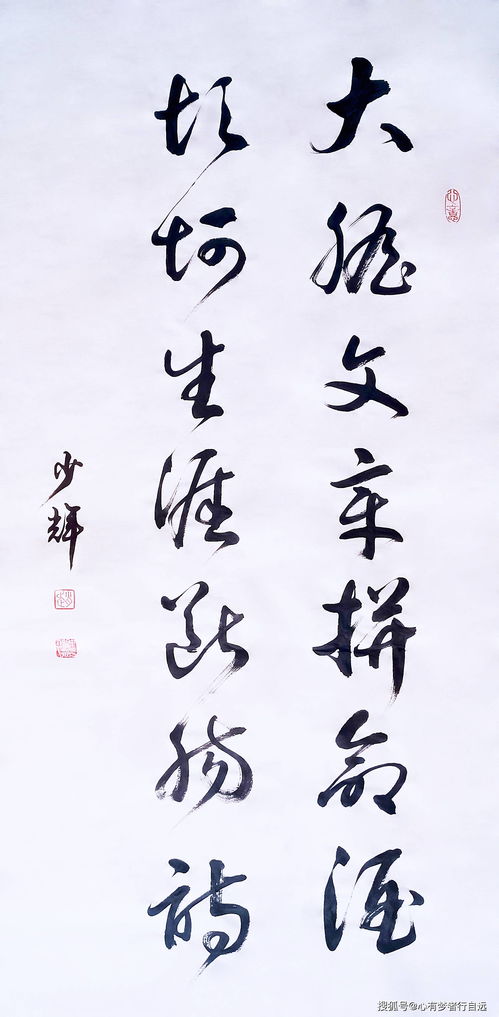 大胆文章拼命酒
坎坷生涯断肠诗
少辉
搜狐号@心有梦者行自远